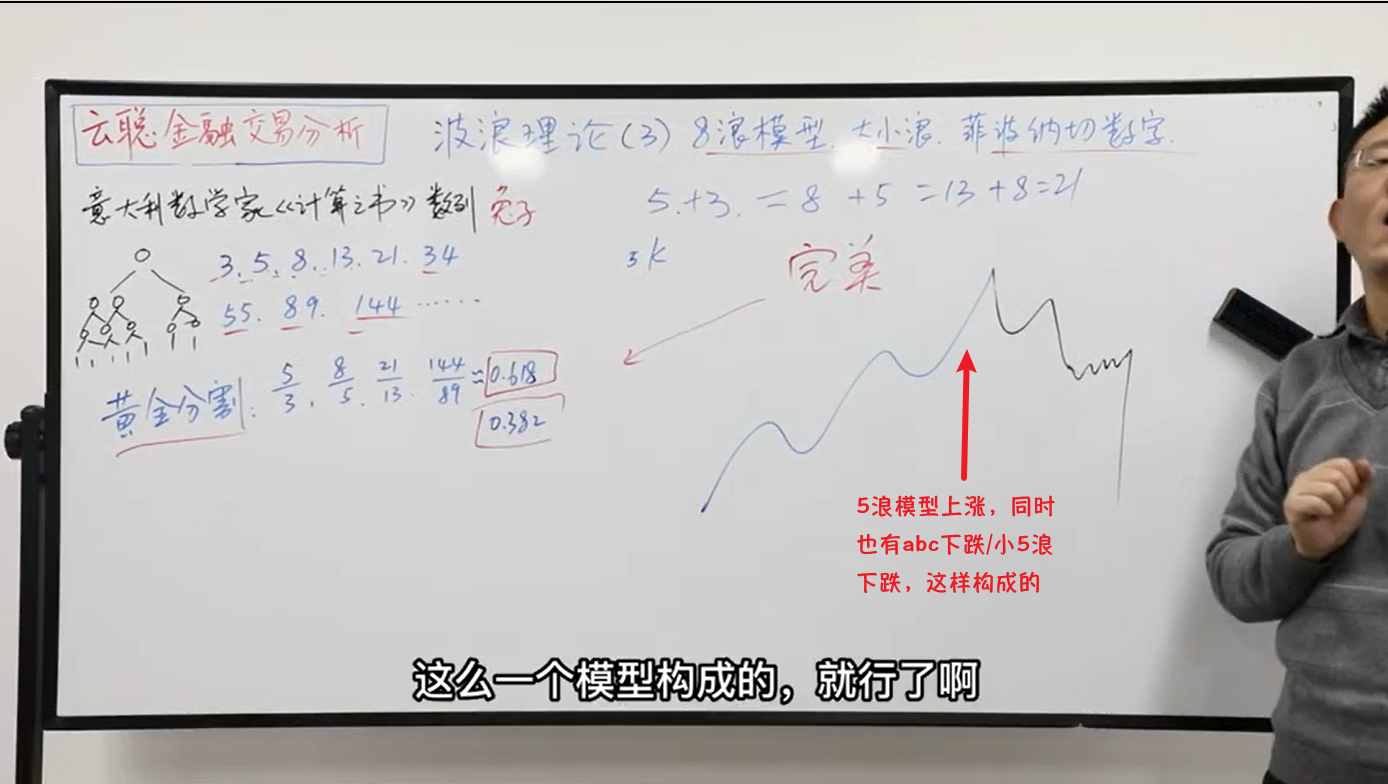 云聪·金融交易分析
波浪理论(3) 8浪模型、大小浪、菲波纳切数字.
意大利数学家《计算之书》数列 兔子
5+3. =8 +5 =13 +8=21
3. 5. 8. 13. 21. 34
55. 89. 144 ······
5K
完美
黄金分割: 5/3. 8/5. 21/13. 144/89 ≈ 0.618
0.382
5浪模型上涨，同时
也有abc下跌/小5浪
下跌，这样构成的
这么一个模型构成的，就行了啊